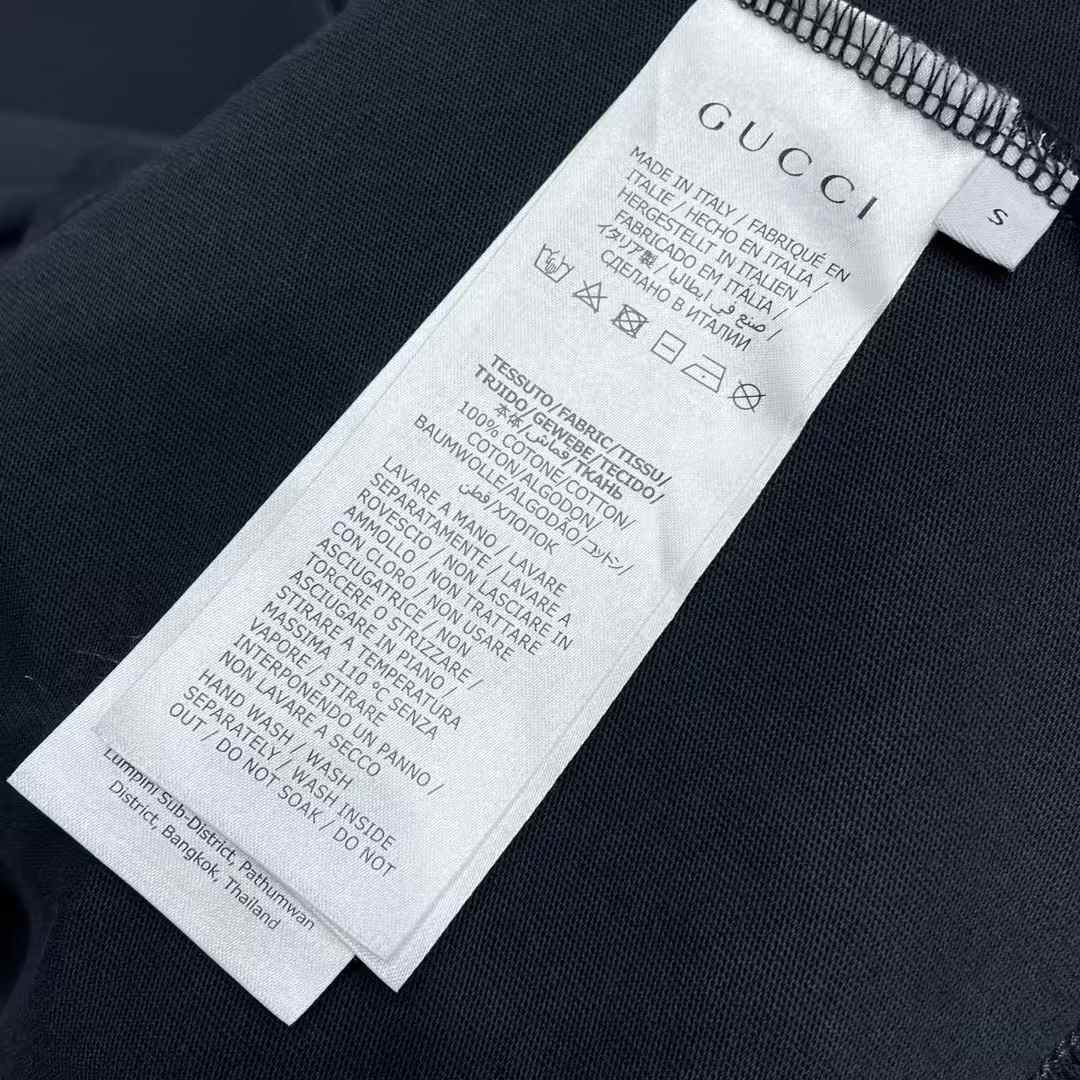 GUCCI
S
MADE IN ITALY / FABRIQUÉ EN
ITALIE / HECHO EN ITALIA /
HERGESTELLT IN ITALIEN /
FABRICADO EM ITÁLIA /
イタリア製 / صنع في ايطاليا /
СДЕЛАНО В ИТАЛИИ
TESSUTO/FABRIC/TISSU/
TRJIDO/GEWEBE/TECIDO/
本体/قماش/ТКАНЬ
100% COTONE/COTTON/
COTON/ALGODON/
BAUMWOLLE/ALGODÃO/コットン/
قطن/ХЛОПОК
LAVARE A MANO / LAVARE
SEPARATAMENTE / LAVARE A
ROVESCIO / NON LASCIARE IN
AMMOLLO / NON TRATTARE
CON CLORO / NON USARE
ASCIUGATRICE / NON
TORCERE O STRIZZARE /
ASCIUGARE IN PIANO /
STIRARE A TEMPERATURA
MASSIMA 110 °C SENZA
VAPORE / STIRARE
INTERPONENDO UN PANNO /
NON LAVARE A SECCO
HAND WASH / WASH
SEPARATELY / WASH INSIDE
OUT / DO NOT SOAK / DO NOT
Lumpini Sub-District, Pathumwan
District, Bangkok, Thailand